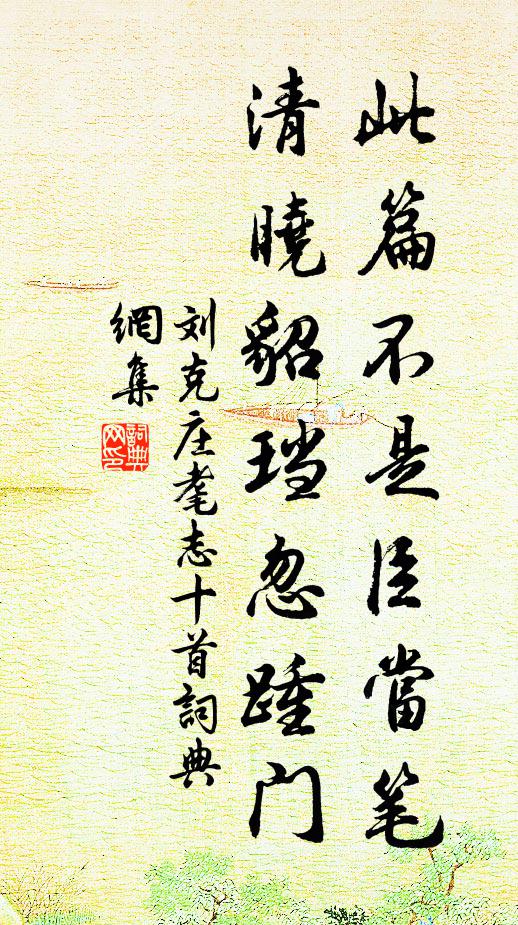 此篇不是臣當笔
清曉貂珰忽踵门
刘克庄耄志十首詞典
網集
詞典
网印